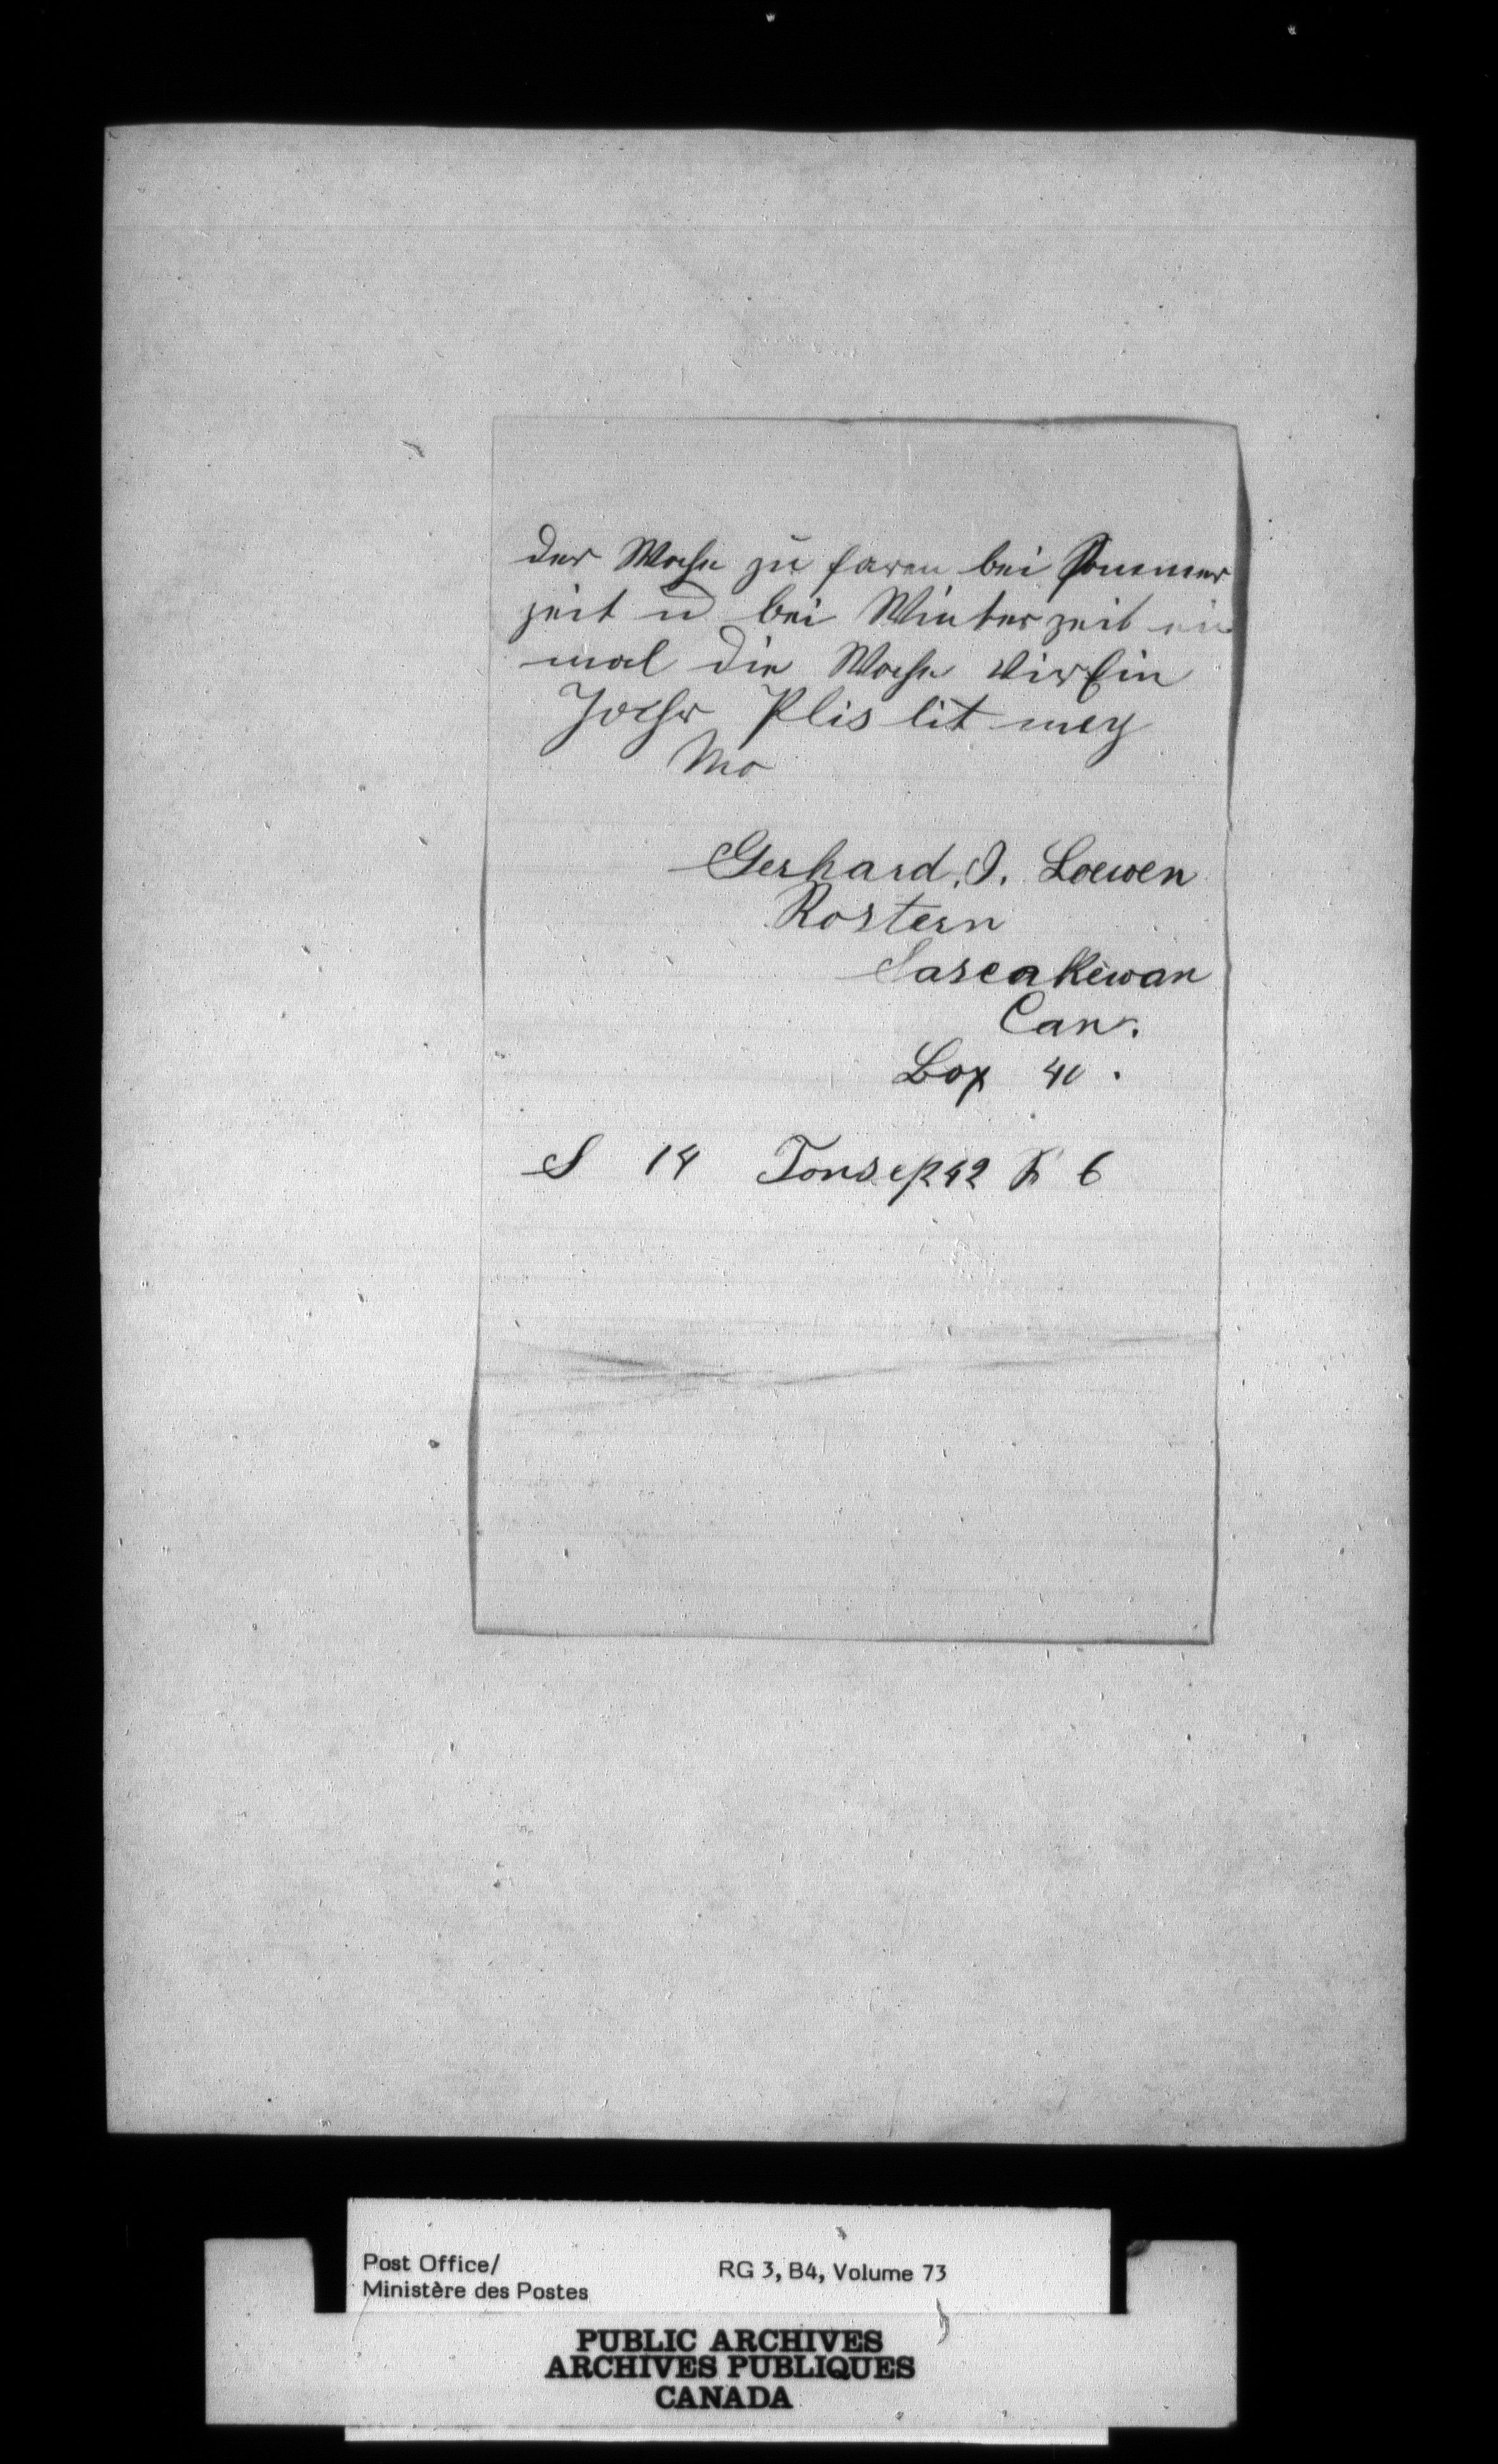 der Woche zu faren bei Sommer
zeit u bei Winter zeit ein
mal die Woche vir ein
Jahr Plis lit mey
Mo
Gerhard. J. Loewen
Rostern
Sascakewan
Can.
Box 40.
S 14 Tonsep 42 R 6
Post Office/
Ministère des Postes
RG 3, B4, Volume 73
PUBLIC ARCHIVES
ARCHIVES PUBLIQUES
CANADA